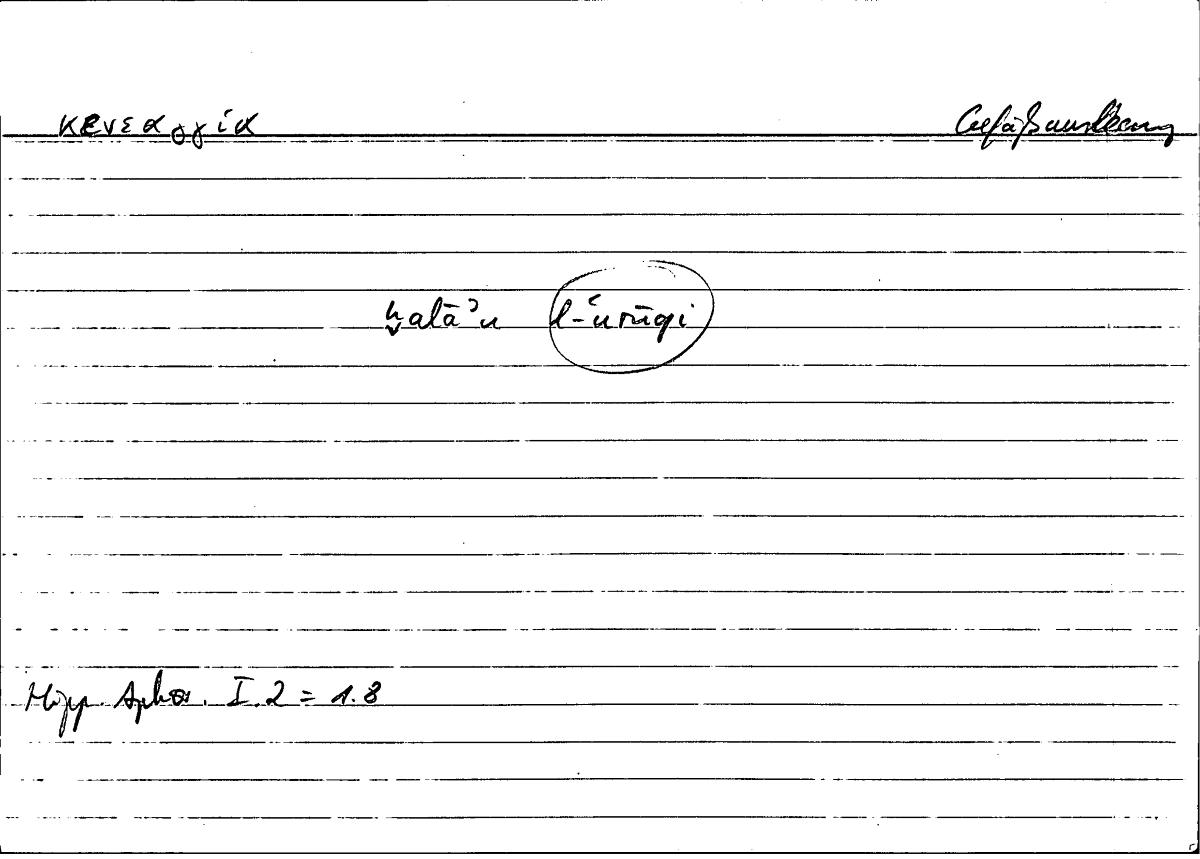 κενεαγγία Gefäßentleerung
ḫalāʾu l-ʿurūqi
Hipp. Aphor. I.2 = 1.8